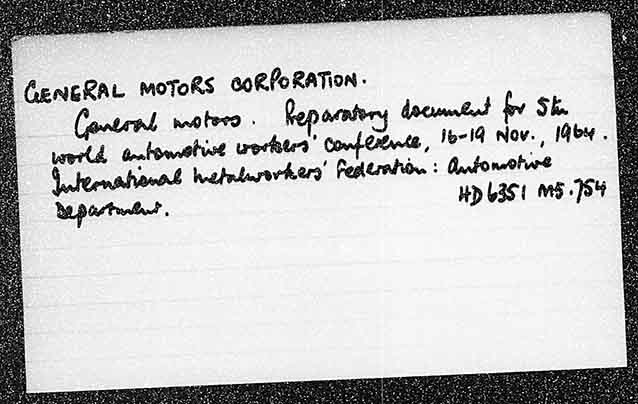 GENERAL MOTORS CORPORATION.
General motors. Preparatory document for 5th
world automotive workers' conference, 16-19 Nov., 1964.
International Metalworkers' Federation: Automotive
Department.
HD6351 M5.754